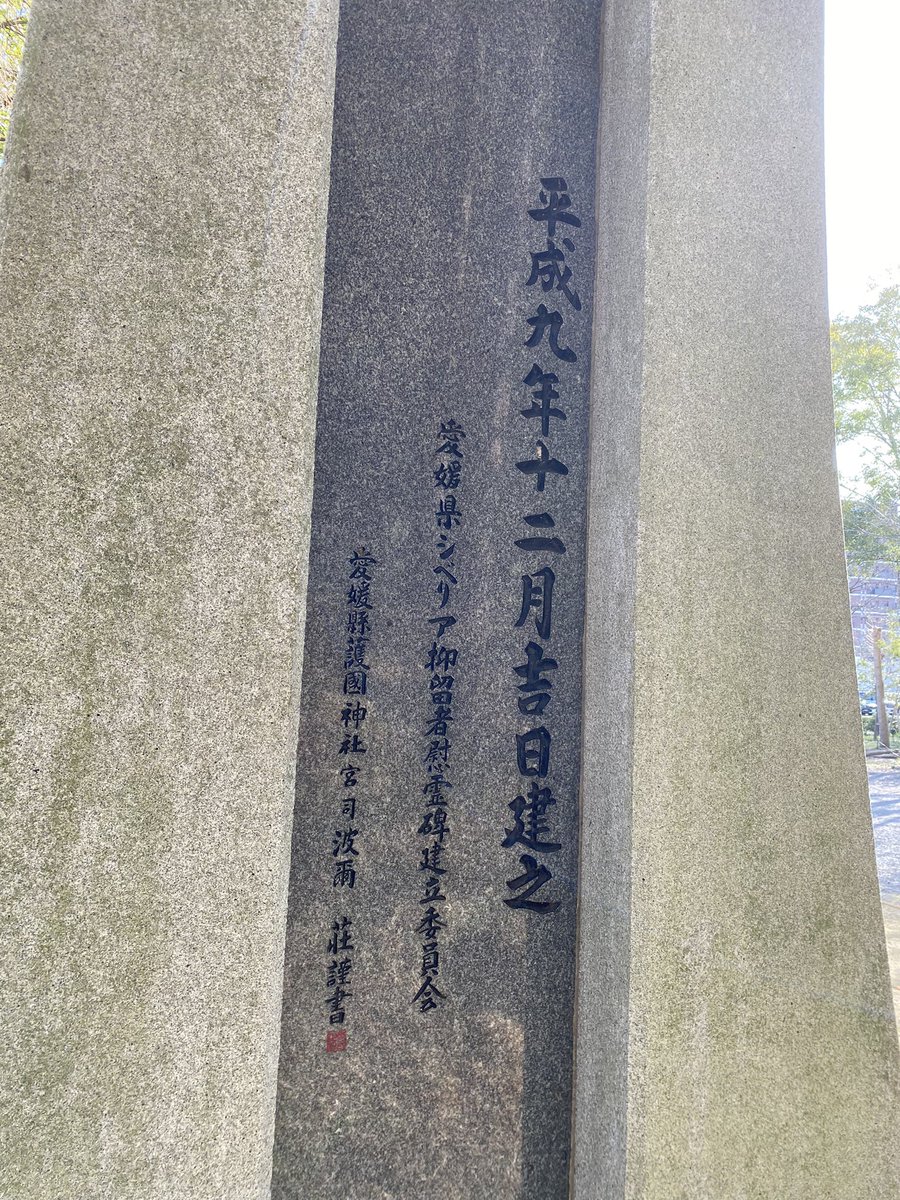 平成九年十二月吉日建之
愛媛県シベリア抑留者慰霊碑建立委員会
愛媛縣護國神社宮司波爾 荘謹書